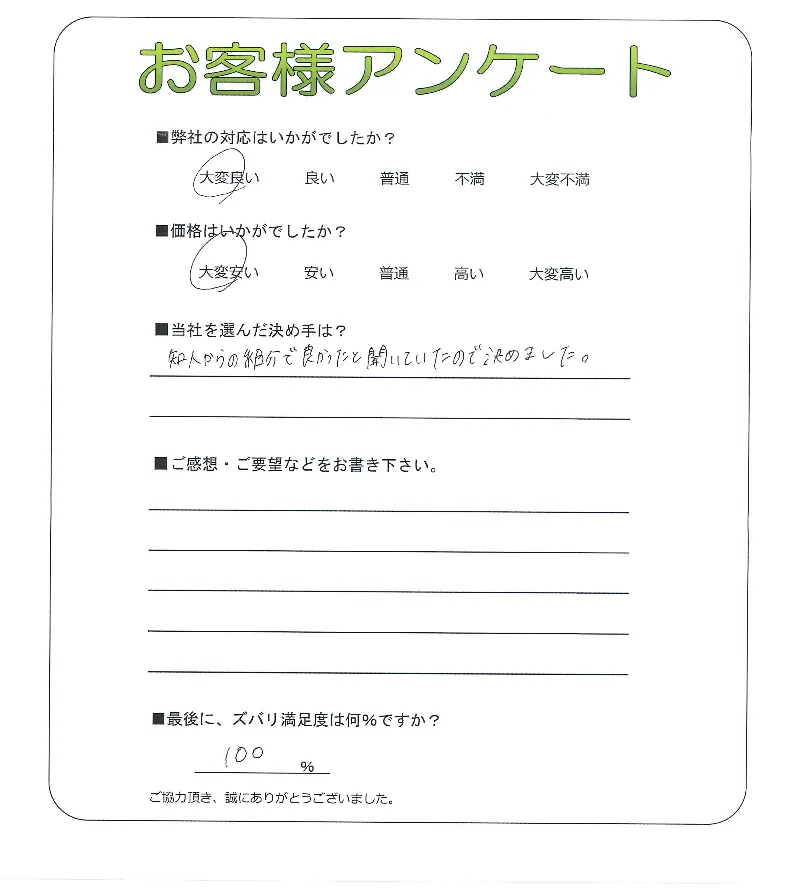 お客様アンケート
■弊社の対応はいかがでしたか？
大変良い 良い 普通 不満 大変不満
■価格はいかがでしたか？
大変安い 安い 普通 高い 大変高い
■当社を選んだ決め手は？
知人からの紹介で良かったと聞いていたので決めました。
■ご感想・ご要望などをお書き下さい。
■最後に、ズバリ満足度は何％ですか？
100 %
ご協力頂き、誠にありがとうございました。